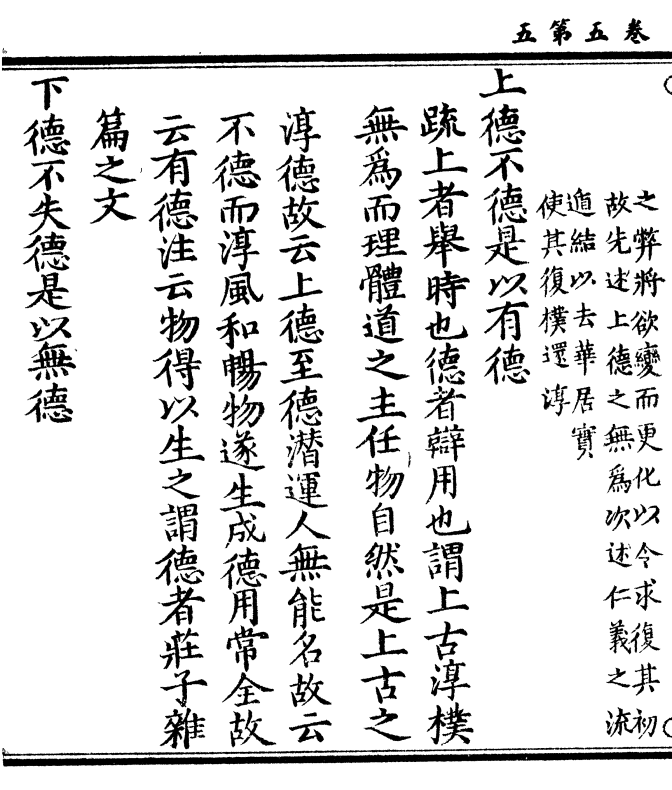 卷五第五
之弊將欲變而更化以今求復其初
故先述上德之無爲次述仁義之流
遁結以去華居實
使其復樸還淳
上德不德是以有德
疏上者舉時也德者辯用也謂上古淳樸
無爲而理體道之主任物自然是上古之
淳德故云上德至德潛運人無能名故云
不德而淳風和暢物遂生成德用常全故
云有德注云物得以生之謂德者莊子雜
篇之文
下德不失德是以無德